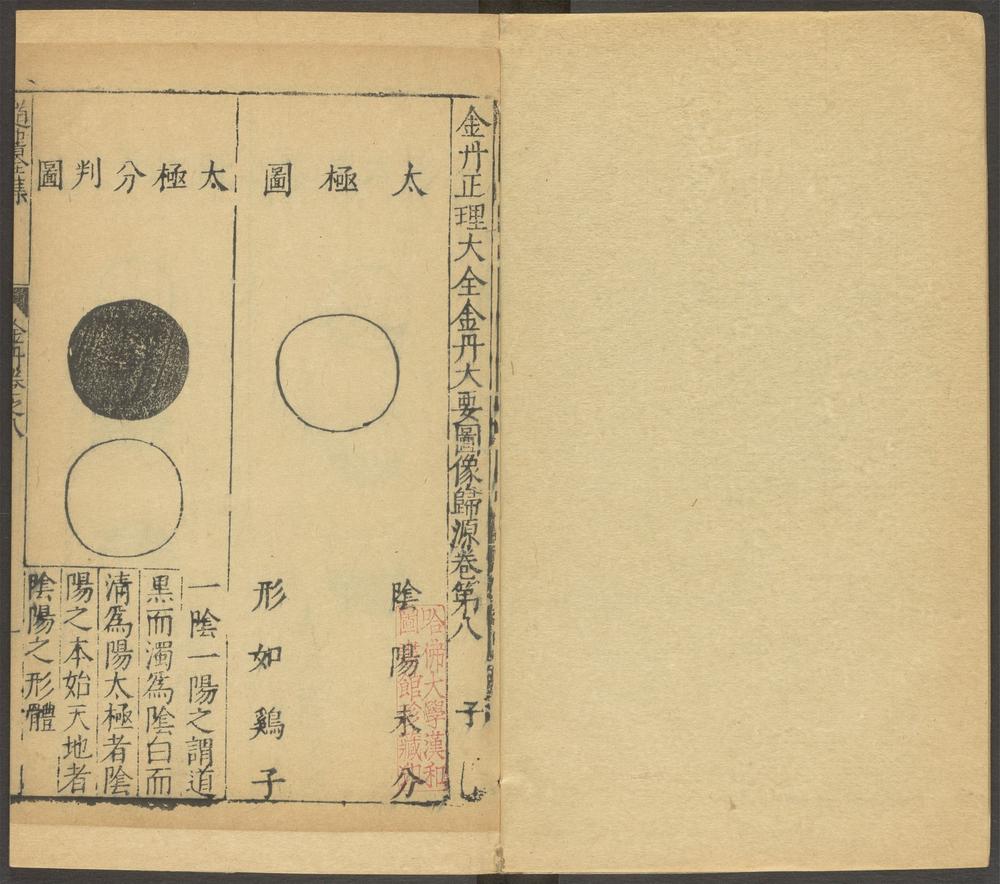 金丹正理大全金丹大要圖像歸源卷第八 子
太極圖
陰陽未分
形如鷄子
太極分判圖
一陰一陽之謂道
黒而濁爲陰白而
清爲陽太極者陰
陽之本始天地者
陰陽之形體
道書全集
金丹卷之八
哈佛大學漢和
圖書館珍藏印